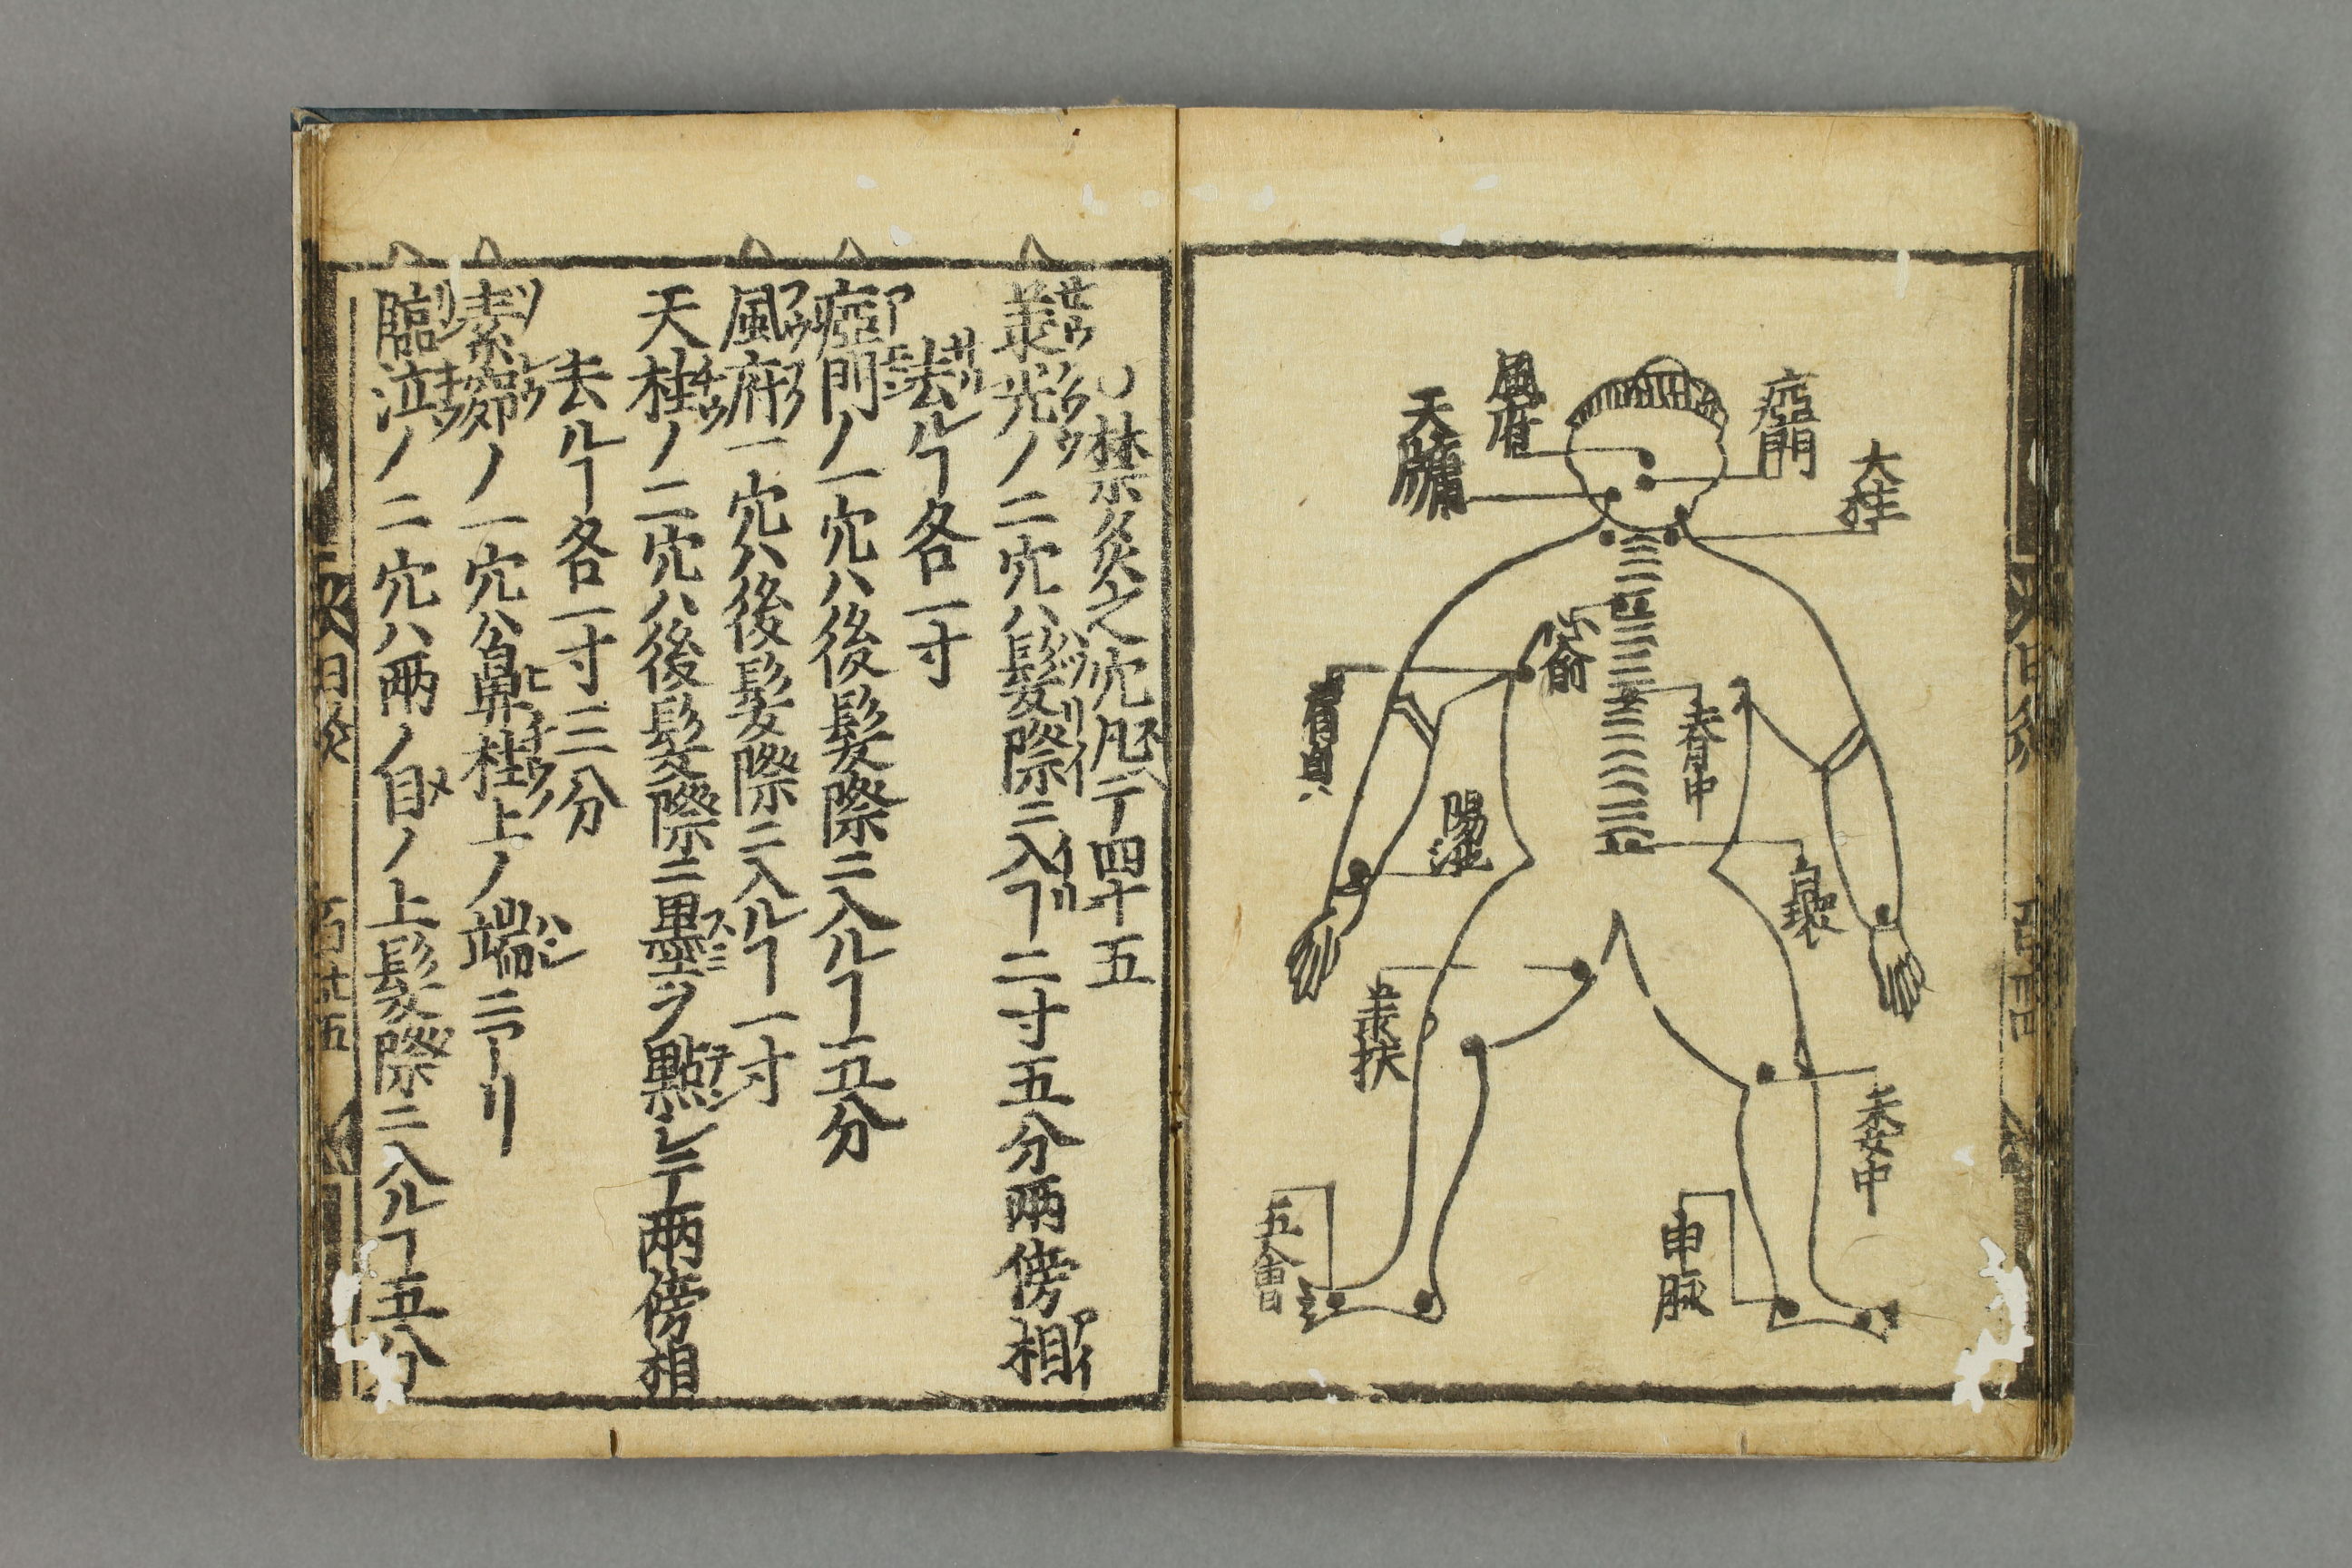 瘂門
大柱
風府
天牖
心俞
脊中
肩貞
陽池
白環
承扶
委中
申脉
五會
禁灸之穴凡テ四十五
〽承光ノ二穴ハ髪際ニ入ルヿ二寸五分兩傍相
去ルヿ各一寸
〽瘂門ノ一穴ハ後髪際ニ入ルヿ五分
〽風府一穴ハ後髪際ニ入ルヿ一寸
天柱ノ二穴ハ後髪際ニ墨ヲ點シテ兩傍相
去ルヿ各一寸三分
〽素窌ノ一穴ハ鼻柱上ノ端ニアリ
〽臨泣ノ二穴ハ兩ノ目ノ上髪際ニ入ルヿ五分